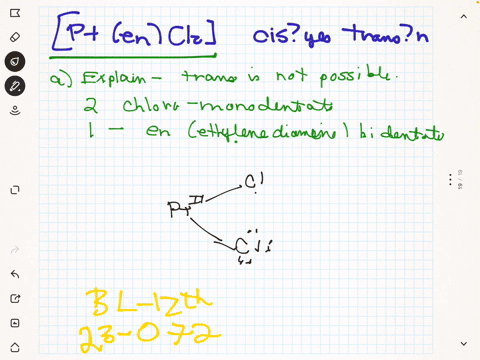 [Pt (en) Cl2] cis? yes trans? n
a) Explain - trans is not possible.
2 chloro - monodentate
1 - en (ethylene diamine) bidentate
Cl
Pt II
Cl
BL-12th
23-072